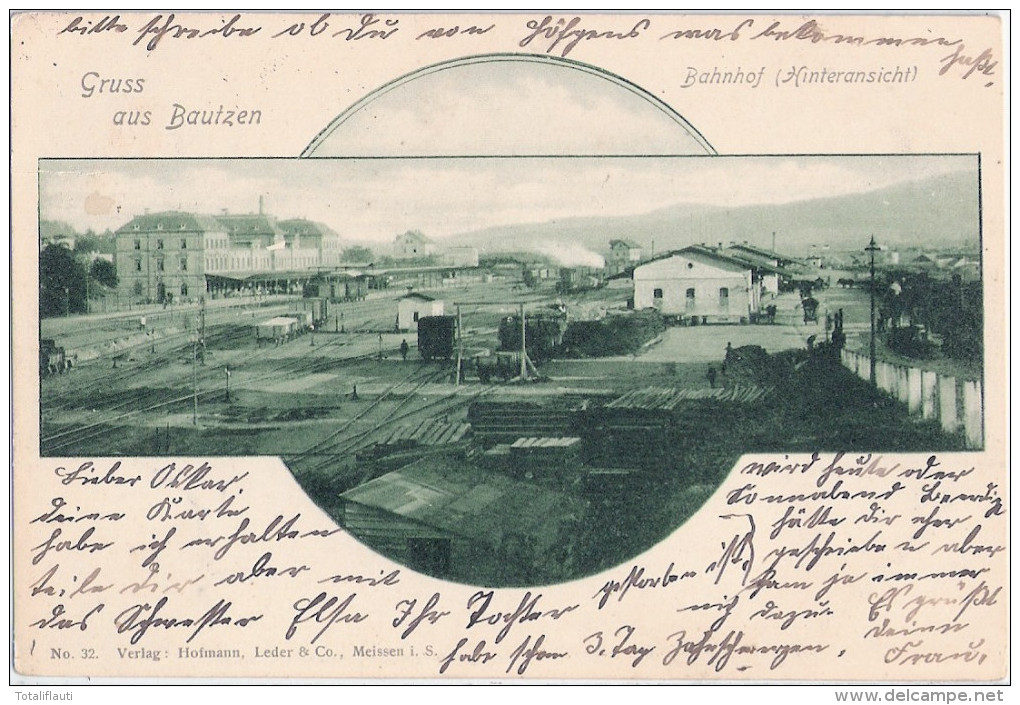 bitte schreibe ob du von Höfgens was bekommen
hast.
Gruss
aus Bautzen
Bahnhof (Hinteransicht)
Lieber Oskar,
deine Karte
habe ich erhalten
teile dir aber mit
das Schwester Elsa Ihr Tochter gestorben ist.
wird heute oder
Sonnabend Beerdig
hätte dir eher
geschrieben u aber
kam ja immer
nig dazu.
habe schon 3. Tag Zahnschmerzen.
Es grüßt
deine
Frau.
No. 32. Verlag: Hofmann, Leder & Co., Meissen i. S.
Totaliflauti
www.delcampe.net